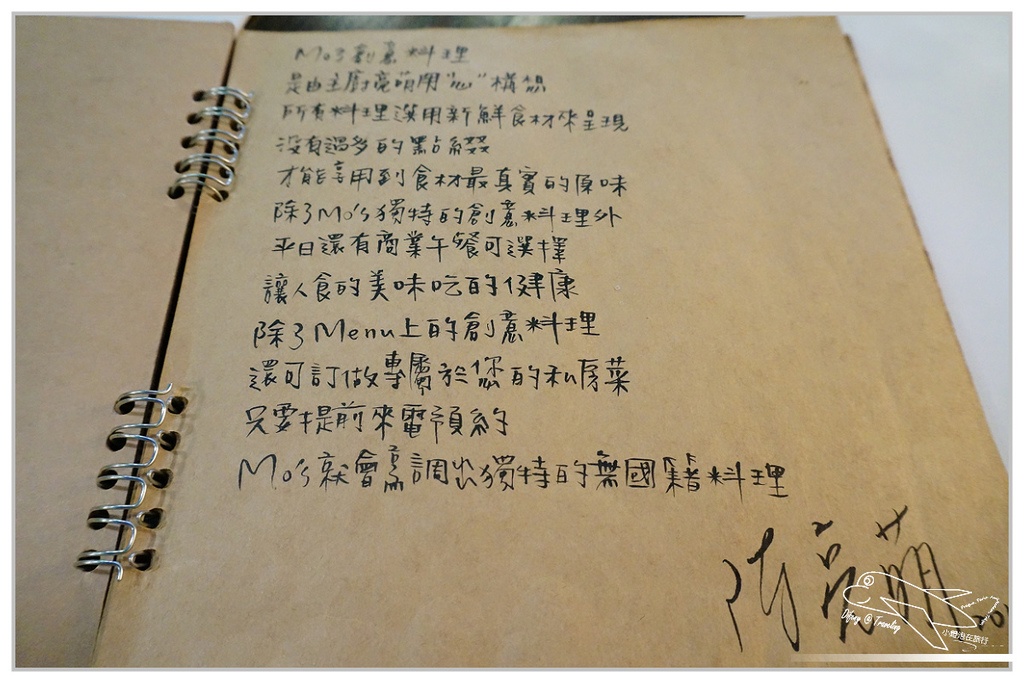 Mo's創意料理
是由主廚亮萌用"心"構想
所有料理選用新鮮食材來呈現
沒有過多的點綴
才能享用到食材最真實的原味
除了Mo's獨特的創意料理外
平日還有商業午餐可選擇
讓人食的美味吃的健康
除了Menu上的創意料理
還可訂做專屬於您的私房菜
只要提前來電預約
Mo's就會烹調出獨特的無國籍料理
陳亮萌
Difeny @ Traveling
小燈泡在旅行